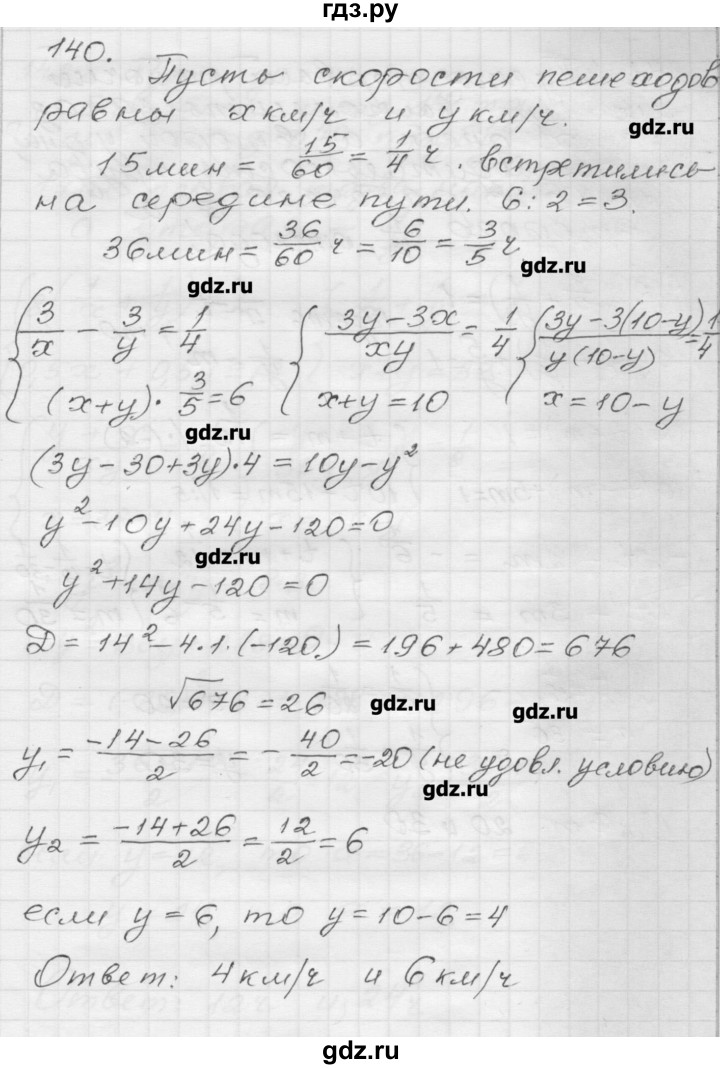 гдз.ру
140. Пусть скорости пешеходов
равны x км/ч и y км/ч.
gdz.ru
15 мин = 15/60 = 1/4 ч. встретились
на середине пути. 6 : 2 = 3.
36 мин = 36/60 ч = 6/10 = 3/5 ч
gdz.ru
gdz.ru
{ 3/x - 3/y = 1/4 { (3y-3x)/xy = 1/4 { (3y-3(10-y))/(y(10-y)) = 1/4
(x+y)·3/5=6 x+y=10 x=10-y
gdz.ru
(3y-30+3y)·4=10y-y²
y²-10y+24y-120=0
gdz.ru
y²+14y-120=0
D=14²-4·1·(-120.)=196+480=676
√676=26
gdz.ru
gdz.ru
y₁ = (-14-26)/2 = -40/2 = -20 (не удовл. условию)
gdz.ru
y₂ = (-14+26)/2 = 12/2 = 6
если y=6, то y=10-6=4
Ответ: 4 км/ч и 6 км/ч
gdz.ru